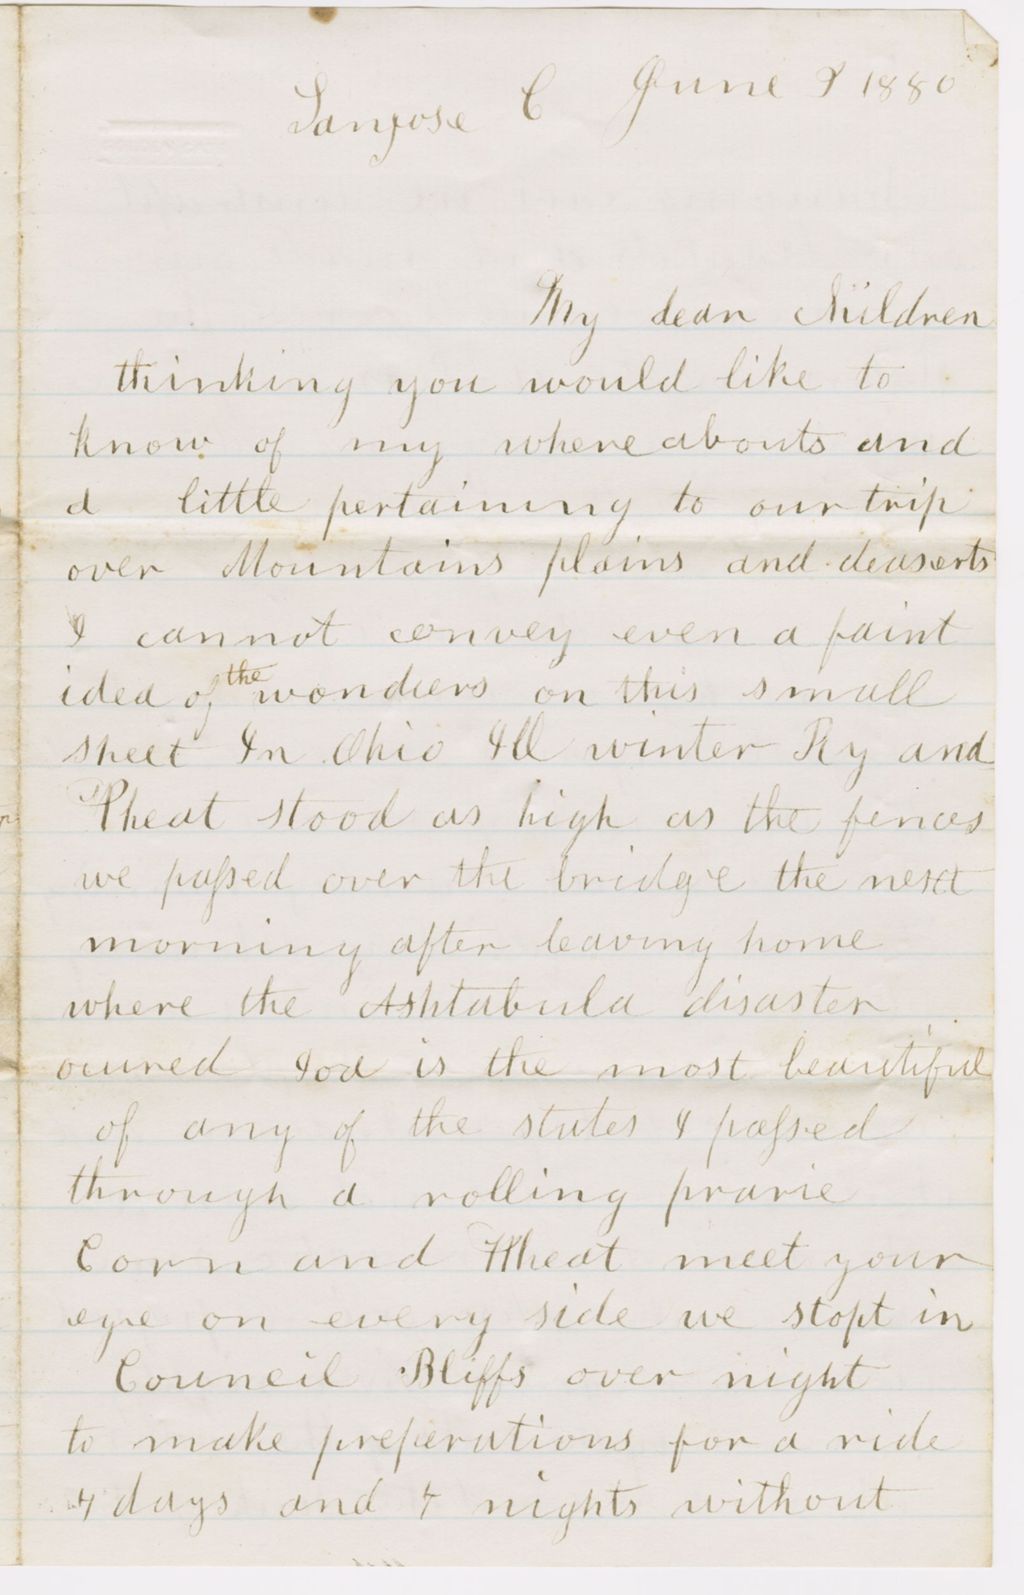 Sanjose C June 9 1880
My dear children
thinking you would like to
know of my where abouts and
a little pertaining to our trip
over Mountains plains and deaserts
I cannot convey even a faint
idea of the wonders on this small
sheet In Ohio Ill winter Ry and
Wheat stood as high as the fences
we passed over the bridge the next
morning after leaving home
where the Ashtabula disaster
ocured Ioa is the most beautiful
of any of the states I passed
through a rolling prarie
Corn and Wheat meet your
eye on every side we stopt in
Council Bliffs over night
to make preperations for a ride
4 days and 4 nights without